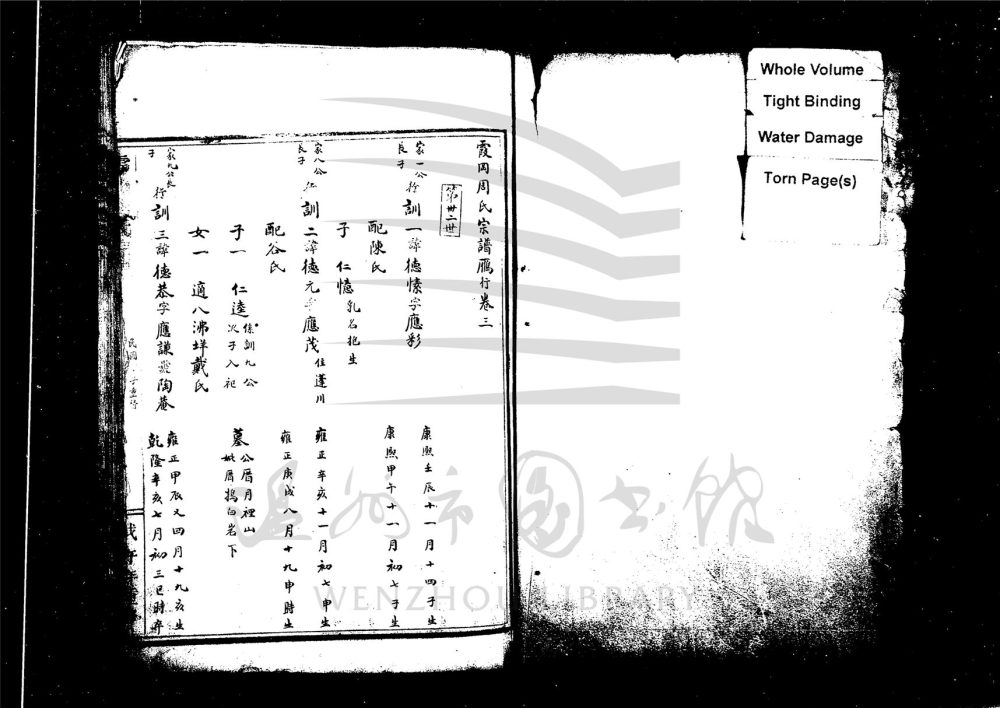 Whole Volume
Tight Binding
Water Damage
Torn Page(s)
霞岡周氏宗譜鴈行卷三
第卅二世
家一公長子
行訓一諱德愫字應彩
康熙壬辰十一月十四子生
配陳氏
康熙甲午十一月初七子生
子 仁憶 乳名抱生
家八公長子
行訓二諱德元字應茂 住蓬川
雍正辛亥十一月初七申生
配谷氏
雍正庚戌八月十九申時生
子一 仁逵 係訓九公次子入祀
墓 公厝月裡山
妣厝搗臼岩下
女一 適八沸垟戴氏
家九公長子
行訓三諱德恭字應謙號陶菴
雍正甲辰又四月十九亥生
乾隆辛亥七月初三巳時卒
民國
溫州市圖書館
WENZHOU LIBRARY